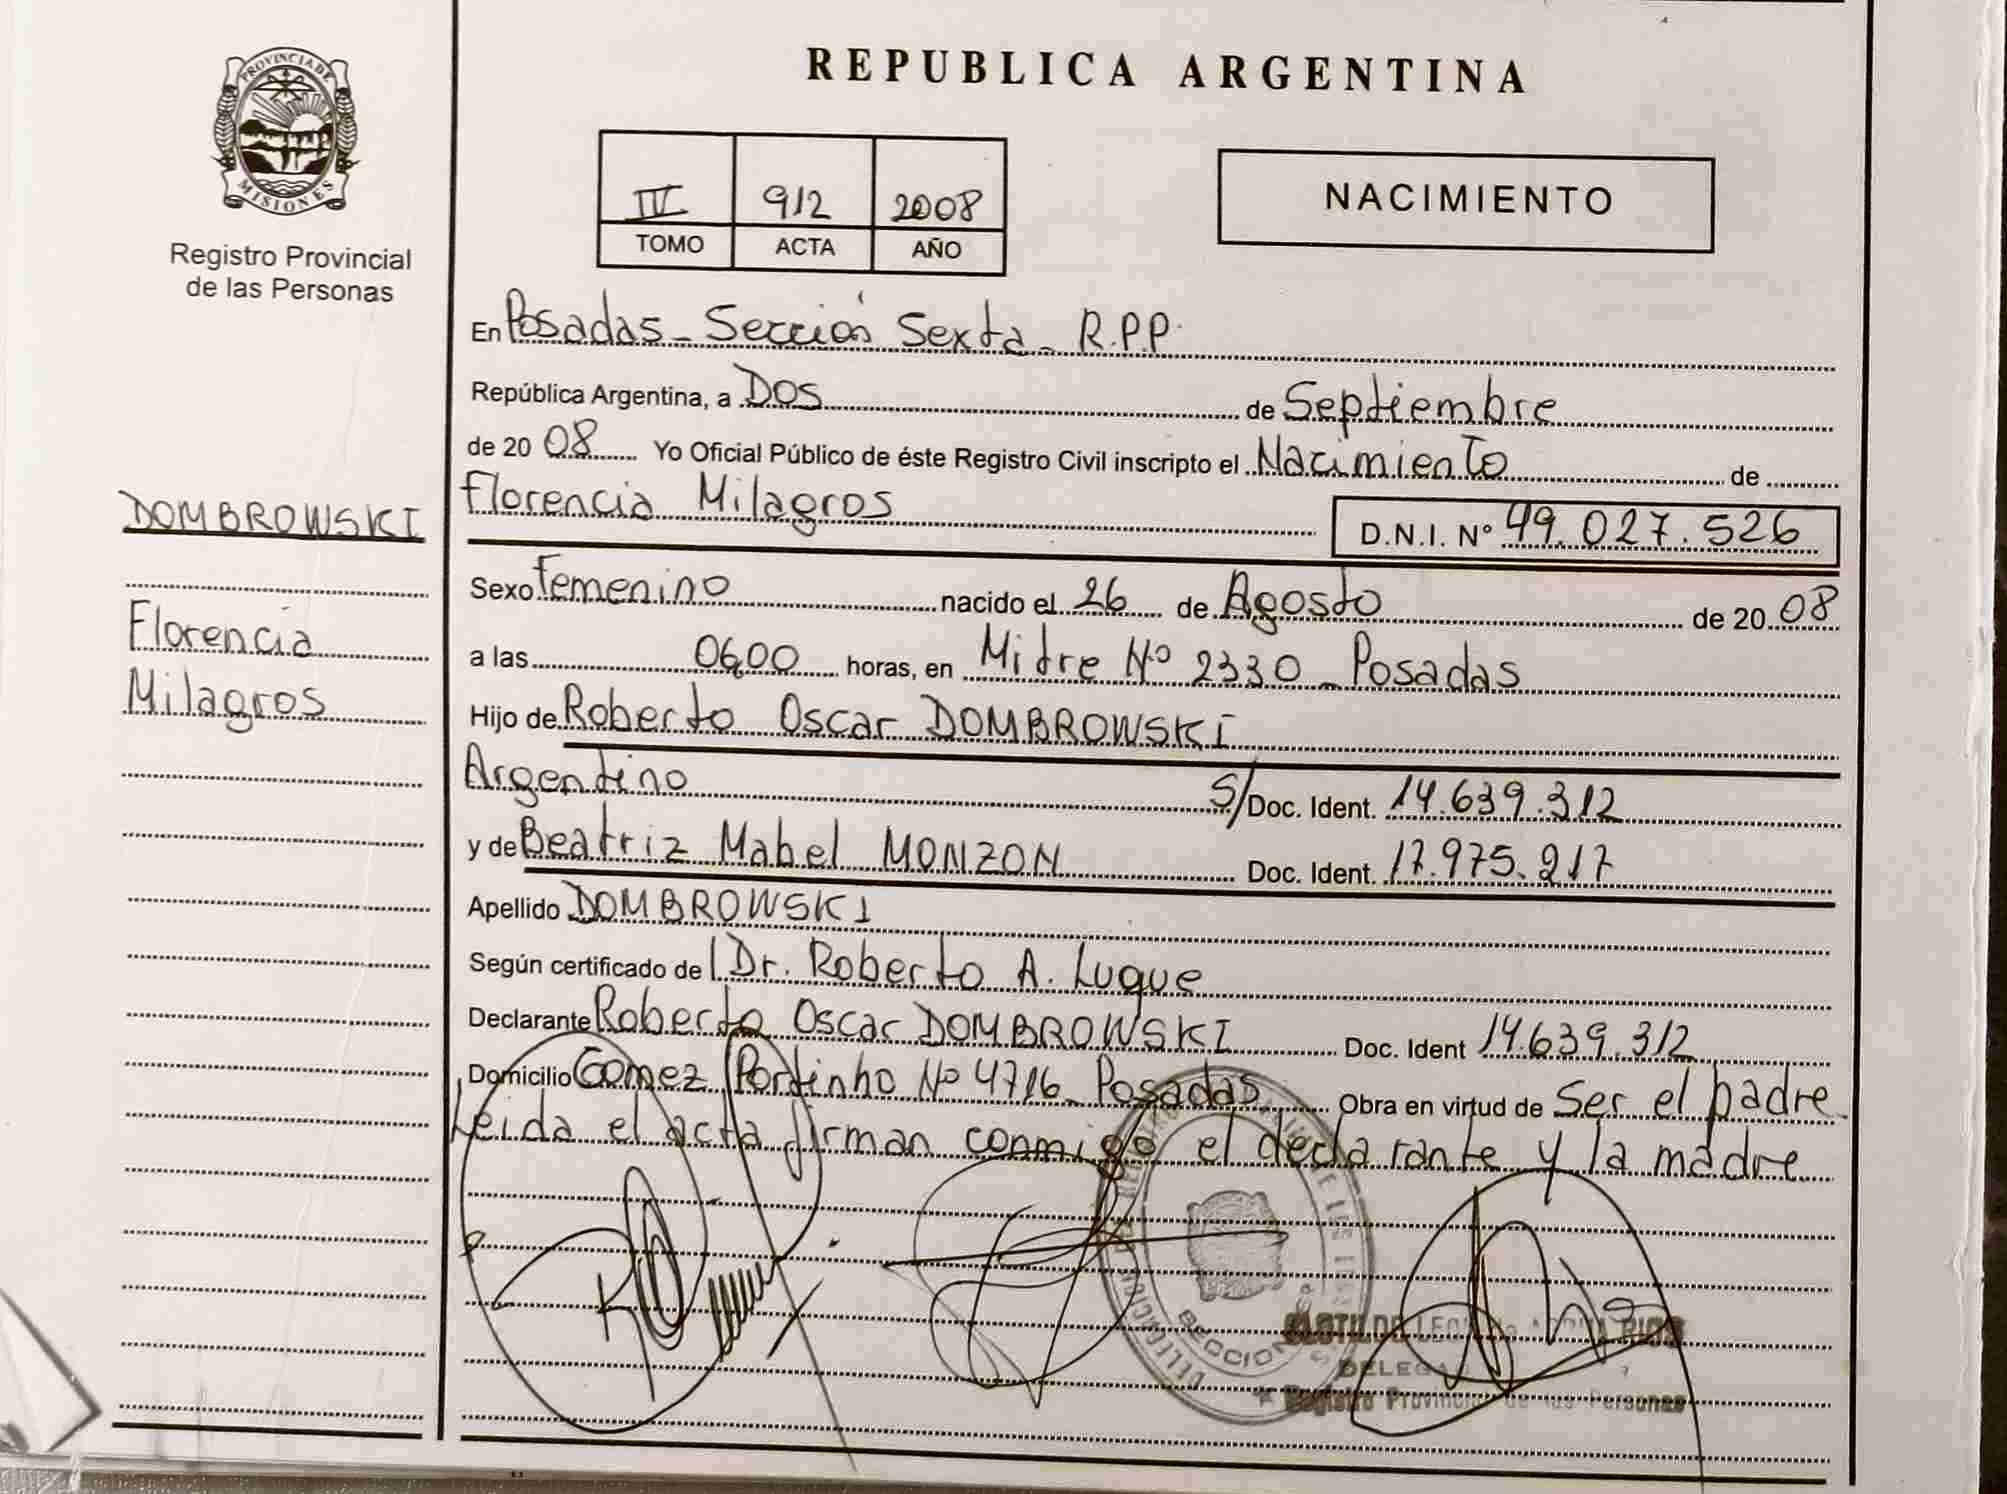 PROVINCIA DE
MISIONES
Registro Provincial
de las Personas
DOMBROWSKI
Florencia
Milagros
REPUBLICA ARGENTINA
IV 912 2008
TOMO ACTA AÑO
NACIMIENTO
En Posadas - Sección Sexta - R.P.P.
República Argentina, a Dos de Septiembre
de 2008 Yo Oficial Público de éste Registro Civil inscripto el Nacimiento de
Florencia Milagros D.N.I. Nº 49.027.526
Sexo Femenino nacido el 26 de Agosto de 2008
a las 0600 horas, en Mitre Nº 2330 - Posadas
Hijo de Roberto Oscar DOMBROWSKI
Argentino S/Doc. Ident. 14.639.312
y de Beatriz Mabel MONZON Doc. Ident. 17.975.217
Apellido DOMBROWSKI
Según certificado del Dr. Roberto A. Luque
Declarante Roberto Oscar DOMBROWSKI Doc. Ident 14.639.312
Domicilio Gomez Portinho Nº 4716 - Posadas Obra en virtud de Ser el padre
Leida el acta firman conmigo el declarante y la madre
SECCION
Registro Provincial de las Personas